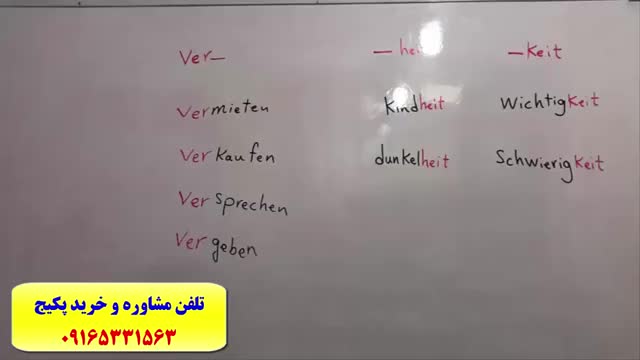 Ver— —heit —Keit
Vermieten Kindheit WichtigKeit
Verkaufen dunkelheit SchwierigKeit
Versprechen
Vergeben
تلفن مشاوره و خرید پکیج
۰۹۱۶۵۳۳۱۵۶۳